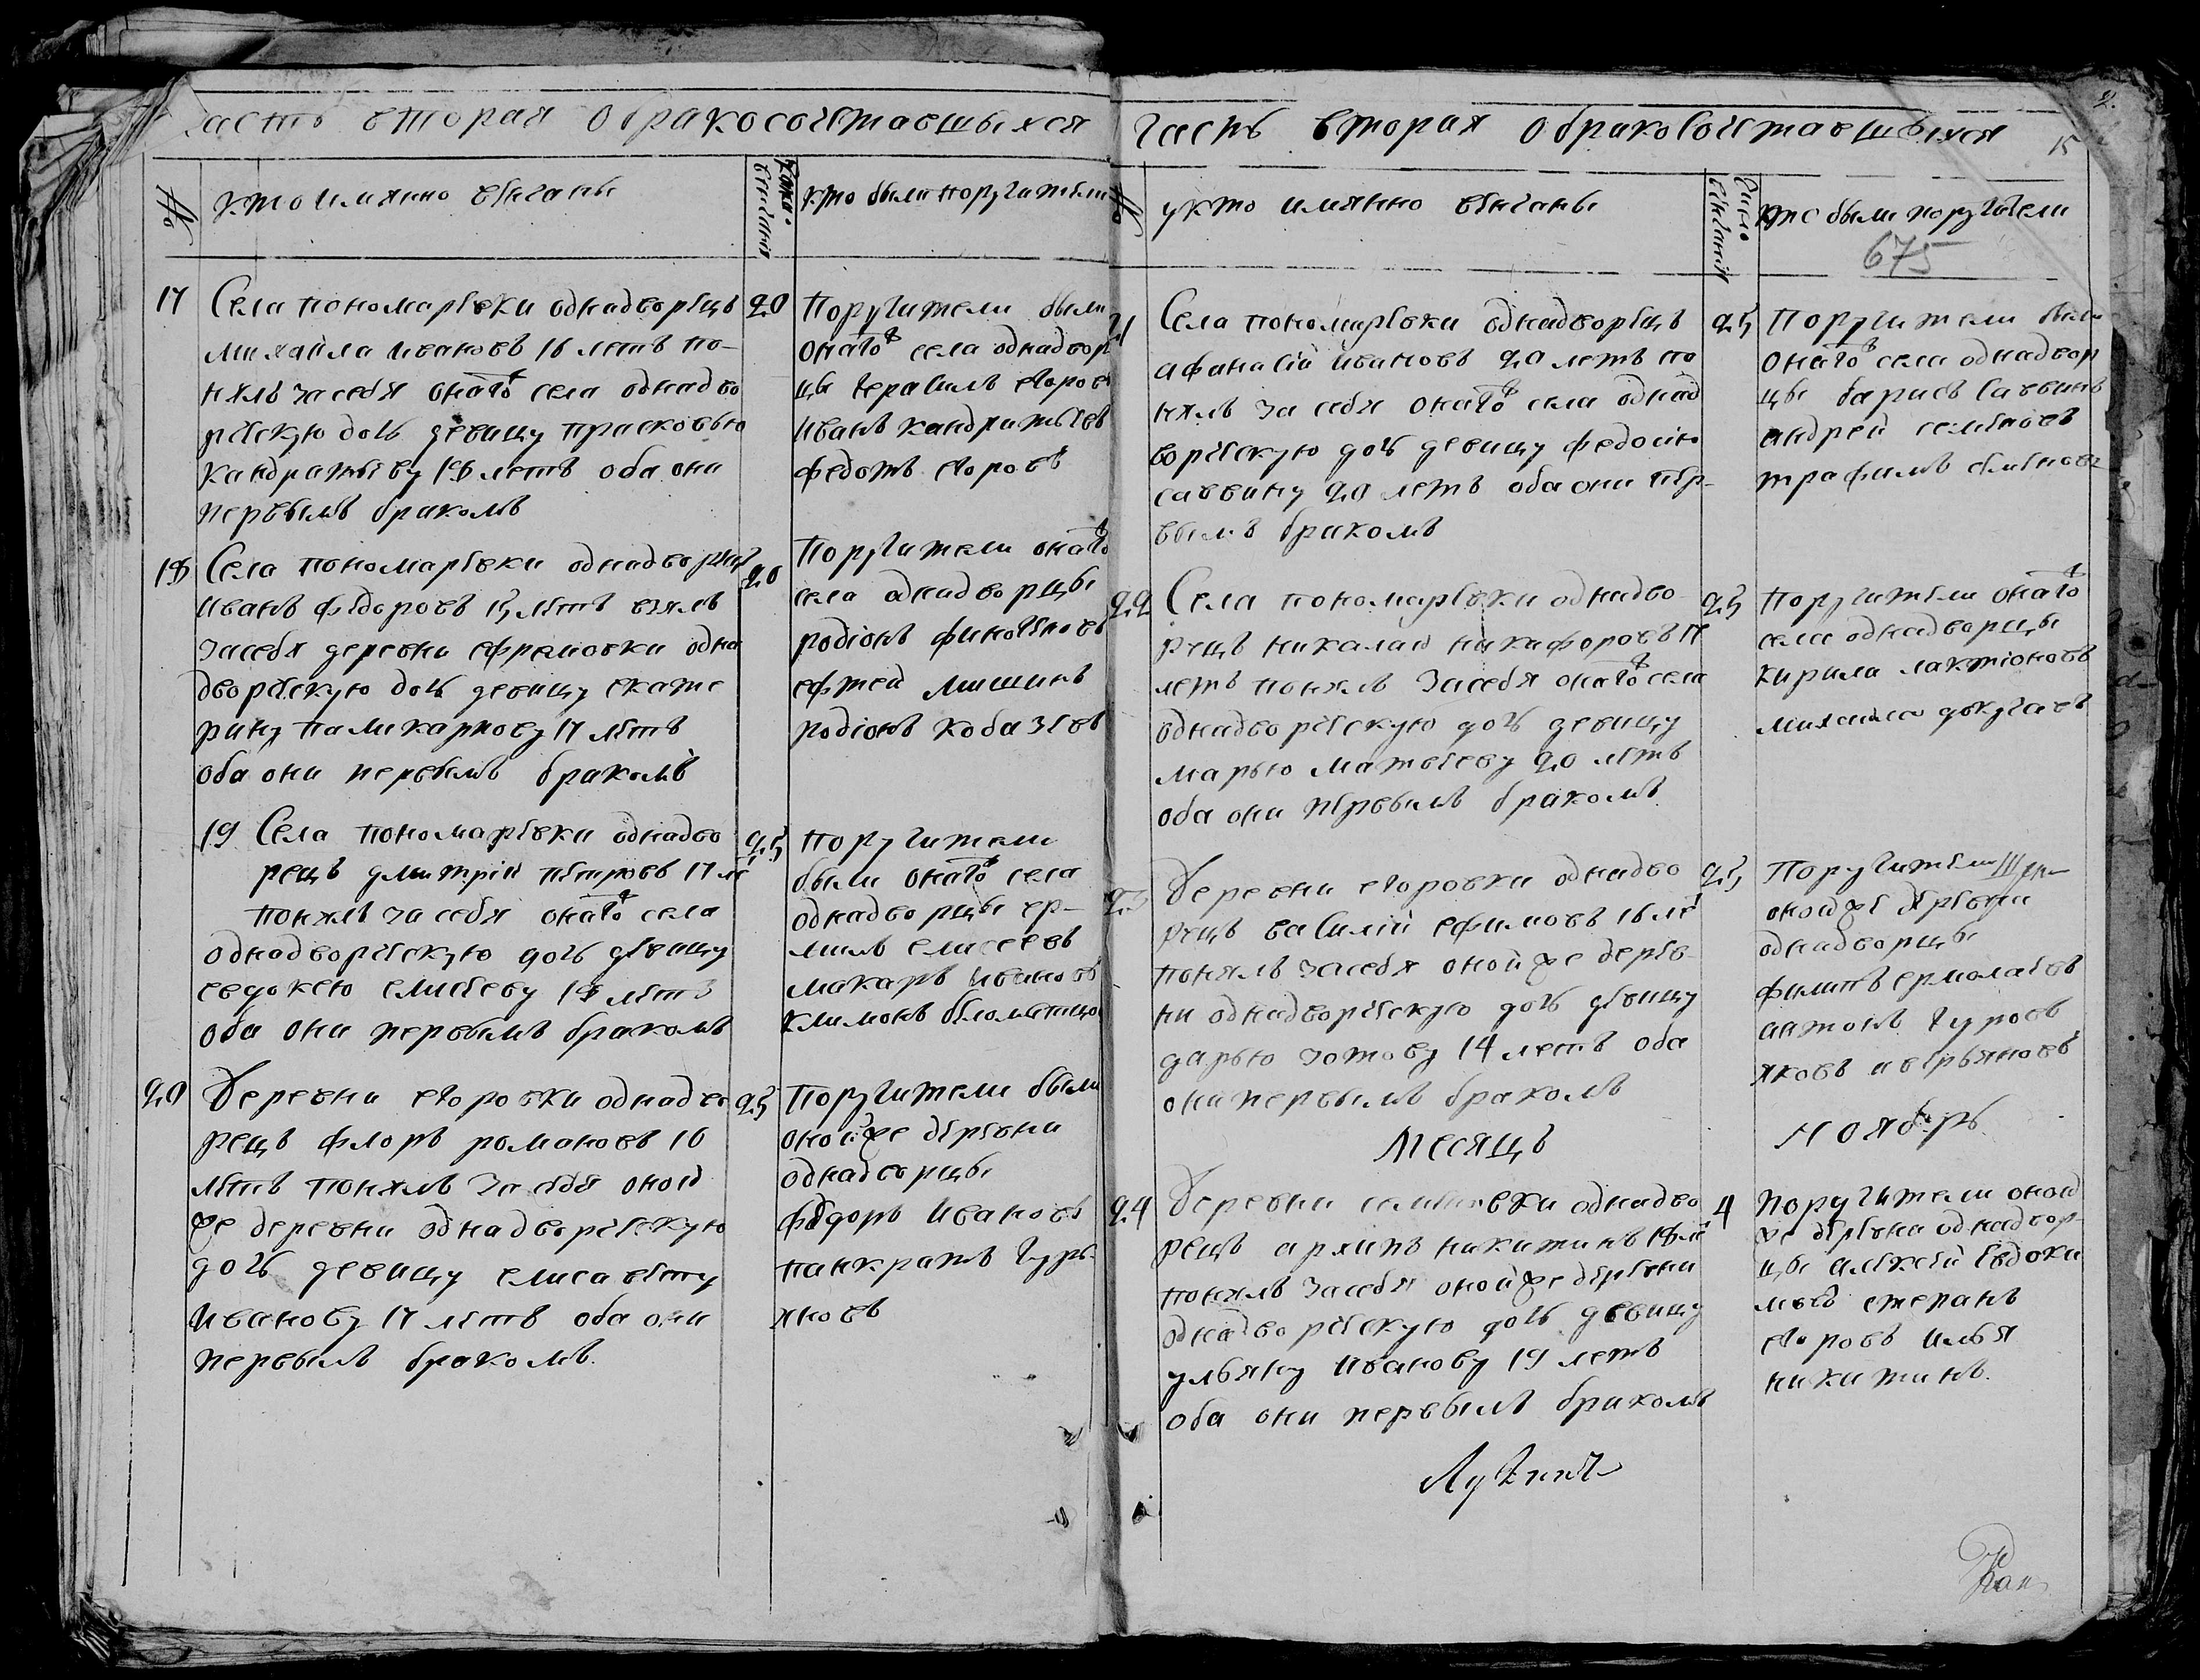 часть вторая обракосочетавшыхся
№
кто имянно венчаны
когда венчание
кто были поручители
17
Села пономаревки однадворецъ
михайла ивановъ 16 летъ по-
нялъ засебя онаго села однадво
рческую дочь девицу прасковью
кандратьеву 18 летъ оба они
первымъ бракомъ
20
Поручители были
онаго села однадвор
цы герасимъ егоровъ
иванъ кандратьевъ
федотъ егоровъ
18
Села пономаревки однадворец
иванъ федоровъ 15 летъ взялъ
засебя деревни ефремовки одна
дворческую дочь девицу екате
рину паликарпову 17 летъ
оба они первымъ бракомъ
20
Поручители онаго
села однадворцы
родіонъ финогеновъ
ефтей мишинъ
родіонъ кобазевъ
19
Села пономаревки однадво
рецъ дмитрій петровъ 17 ле
понялъ засебя онаго села
однадворческую дочь девицу
евдокею елисееву 18 летъ
оба они первымъ бракомъ
25
поручители
были онаго села
однадворцы ер-
милъ елисеевъ
макаръ ивановъ
климонъ
20
Деревни егоровки однадво
рецъ флоръ романовъ 16
летъ понялъ за себя оной
же деревни однадворческую
дочь девицу елисавету
Иванову 17 летъ оба они
первымъ бракомъ.
25
Поручители были
онойже деревни
однадворцы
федоръ Ивановъ
панкратъ гурь-
яновъ
часть вторая обракосочетавшыхся
15
№
кто имянно венчаны
число венчания
кто были поручители
675
21
Села пономаревки однадворецъ
афанасій ивановъ 20 летъ по
нялъ за себя онаго села однад
ворческую дочь девицу федосію
саввину 20 летъ оба они пер-
вымъ бракомъ
25
Поручители были
онаго села однадвор
цы барисъ Саввинъ
андрей семеновъ
трафимъ семеновъ
22
Села пономаревки однадво
рецъ никалай никифоровъ 17
летъ понялъ засебя онаго села
однадворческую дочь девицу
марью матвееву 20 летъ
оба они первымъ бракомъ.
25
поручители онаго
села однадворцы
кирила лактіоновъ
михаила докучаевъ
23
Деревни егоровки однадво
рецъ василій ефимовъ 16 ле
понялъ засебя онойже дерев-
ни однадворческую дочь девицу
дарью зотову 14 летъ оба
они первымъ бракомъ
25
Поручители
онойже деревни
однадворцы
филипъ ермолаевъ
антонъ гуровъ
яковъ аверьяновъ
месяцъ ноябрь
24
Деревни семеновки однадво
рецъ архипъ никитинъ 18 ле
понялъ засебя онойже деревни
однадворческую дочь девицу
ульяну иванову 19 летъ
оба они первымъ бракомъ
4
поручители оной
же деревни однадвор-
цы алексей евдоки
мовъ степанъ
егоровъ илья
никитинъ.